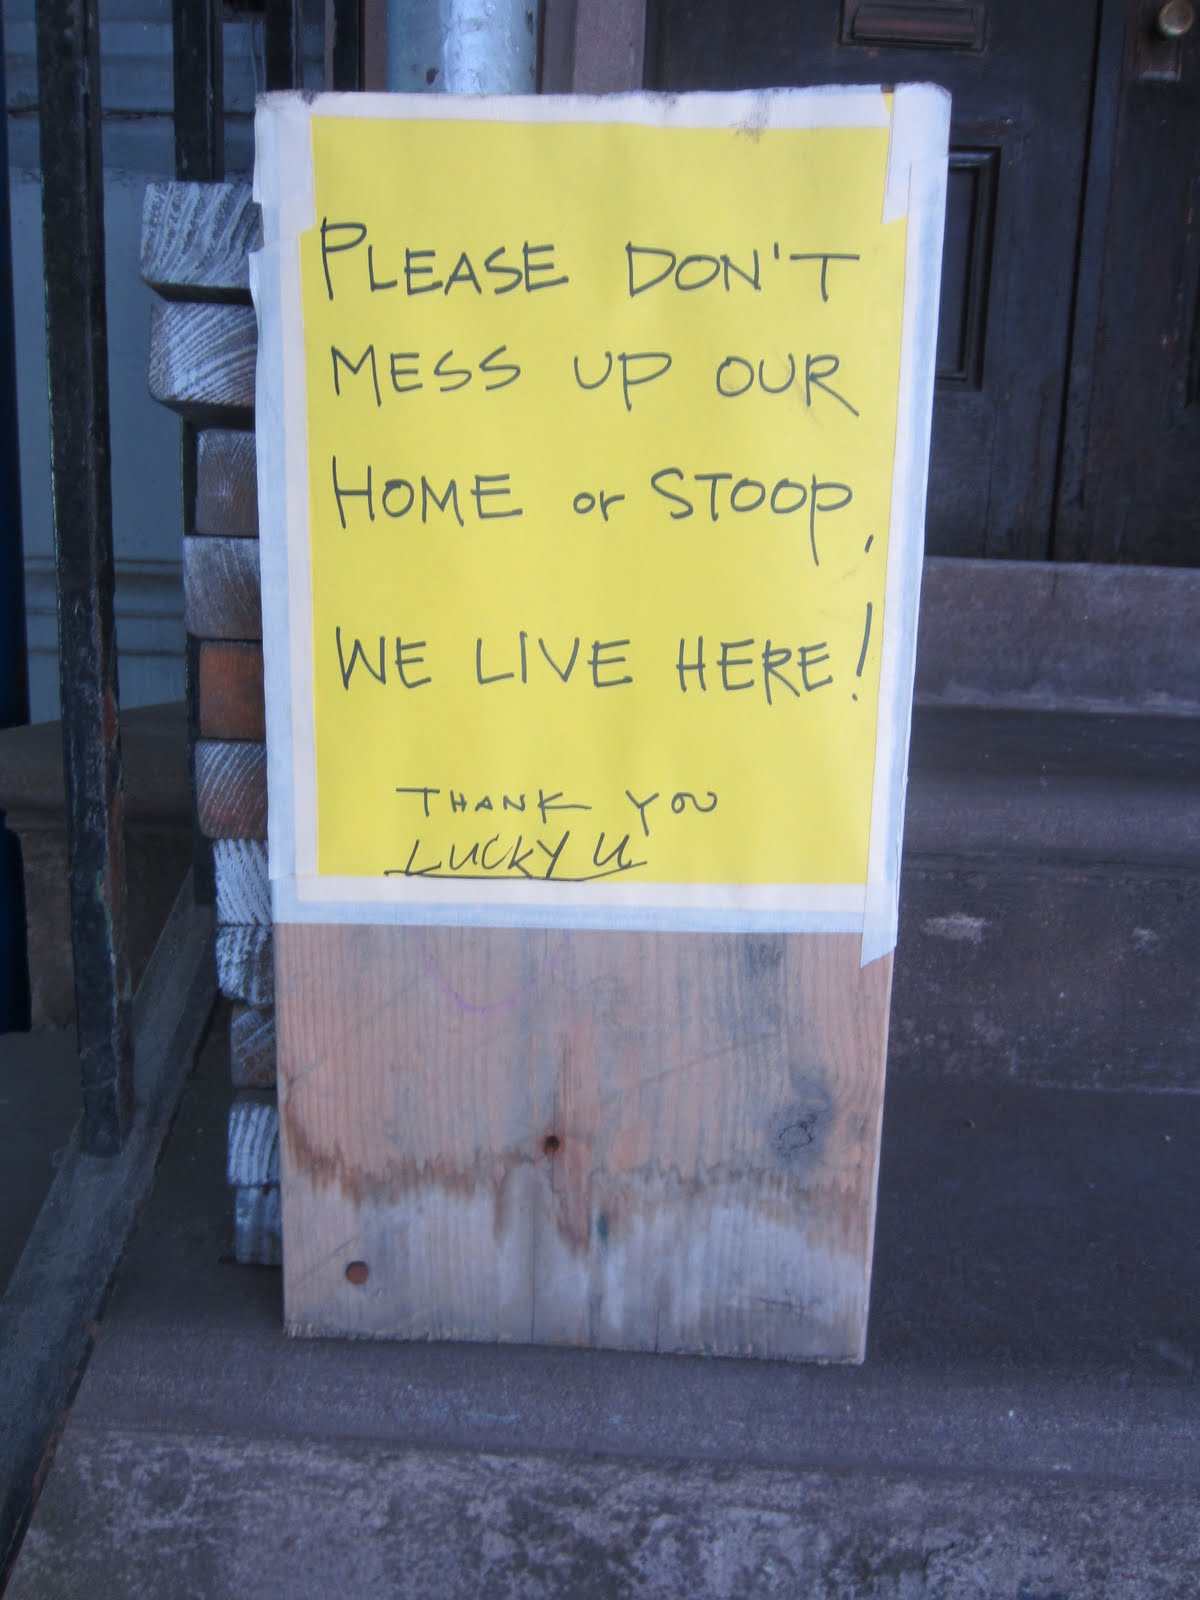 PLEASE DON'T
MESS UP OUR
HOME or STOOP,
WE LIVE HERE!
THANK YOU
LUCKY U